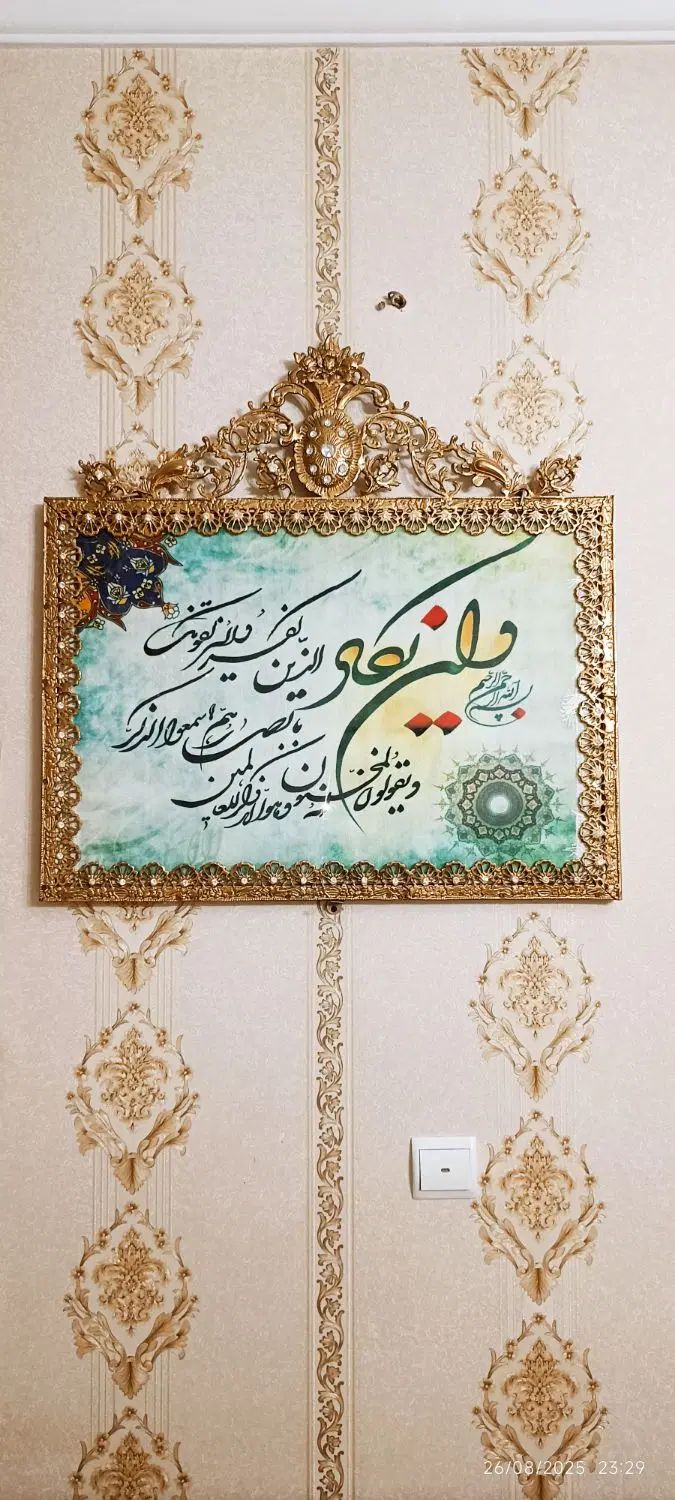 بسم الله الرحمن الرحیم
وان یکاد
الذین کفروا لیزلقونک
بابصارهم لما سمعوا الذکر
ویقولون انه لمجنون
وما هو الا ذکر للعالمین
26/08/2025 23:29